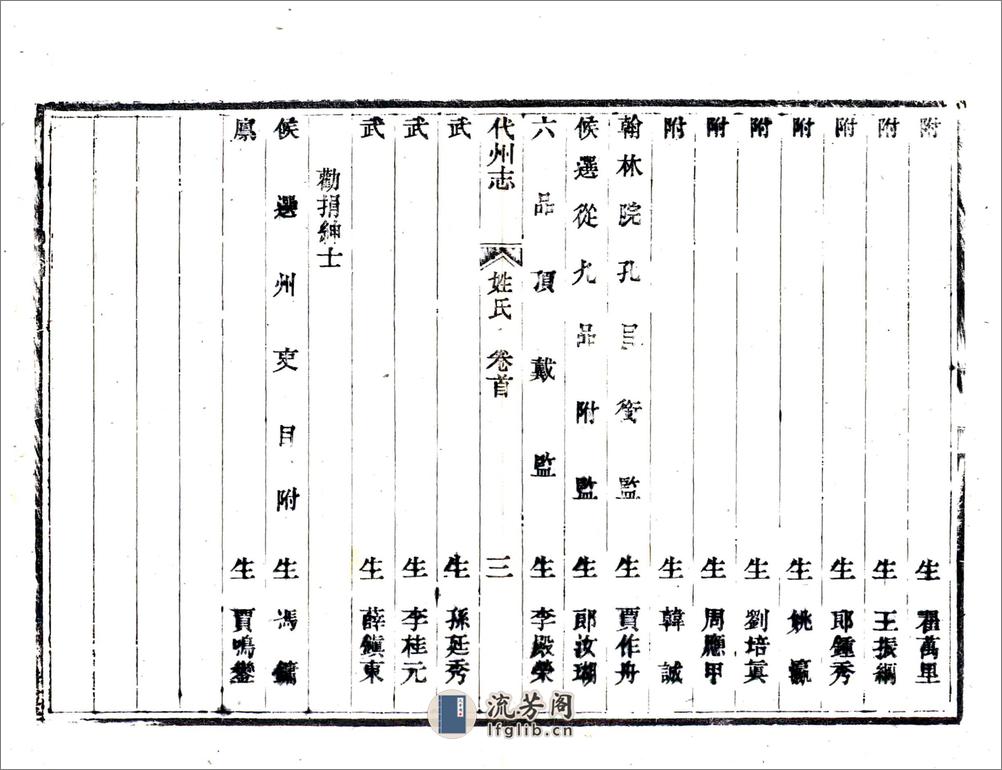 附生翟萬里
附生王振綱
附生郎鍾秀
附生姚瀛
附生劉培真
附生周應甲
附生韓誠
翰林院孔目銜監生賈作舟
候選從九品附監生郎汝瑚
六品頂戴監生李殿榮
代州志 姓氏 卷首 三
武生孫延秀
武生李桂元
武生薛鎮東
勸捐紳士
候選州吏目附生馮鏞
廩生賈鳴鑾
流芳阁
lfglib.cn